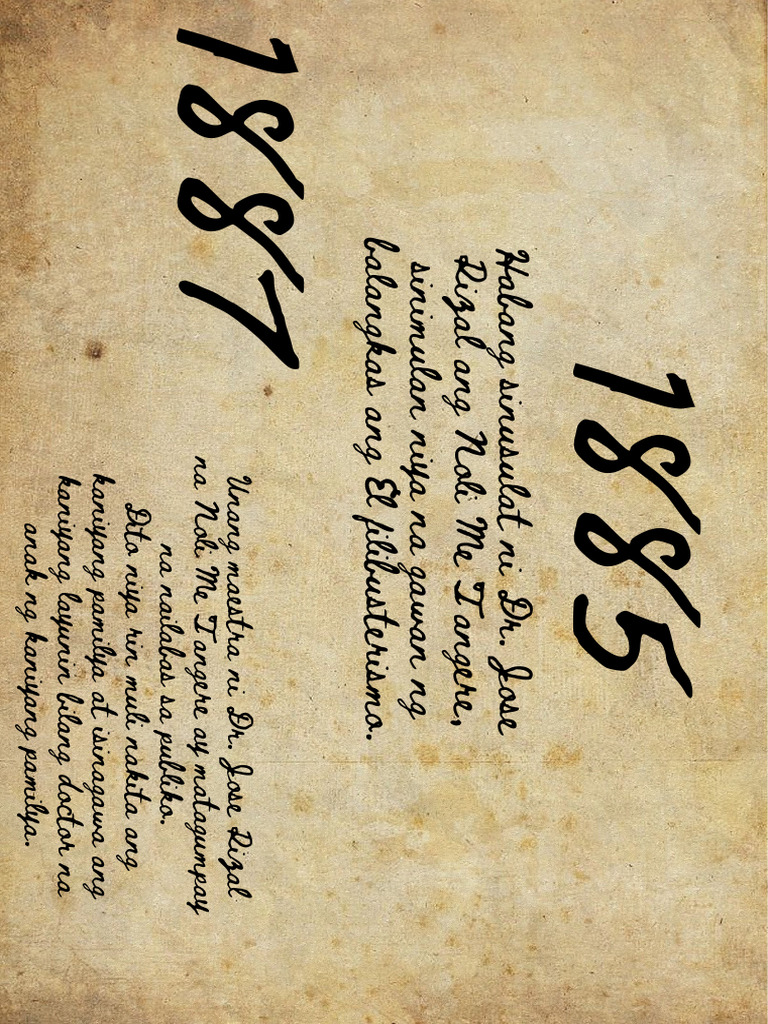 1885
Habang sinusulat ni Dr. Jose
Rizal ang Noli Me Tangere,
sinimulan niya na gawan ng
balangkas ang El filibusterismo.
1887
Unang maestra ni Dr. Jose Rizal
na Noli Me Tangere ay matagumpay
na nailabas sa publiko.
Dito niya rin muli nakita ang
kaniyang pamilya at isinagawa ang
kaniyang layunin bilang doctor na
anak ng kaniyang pamilya.